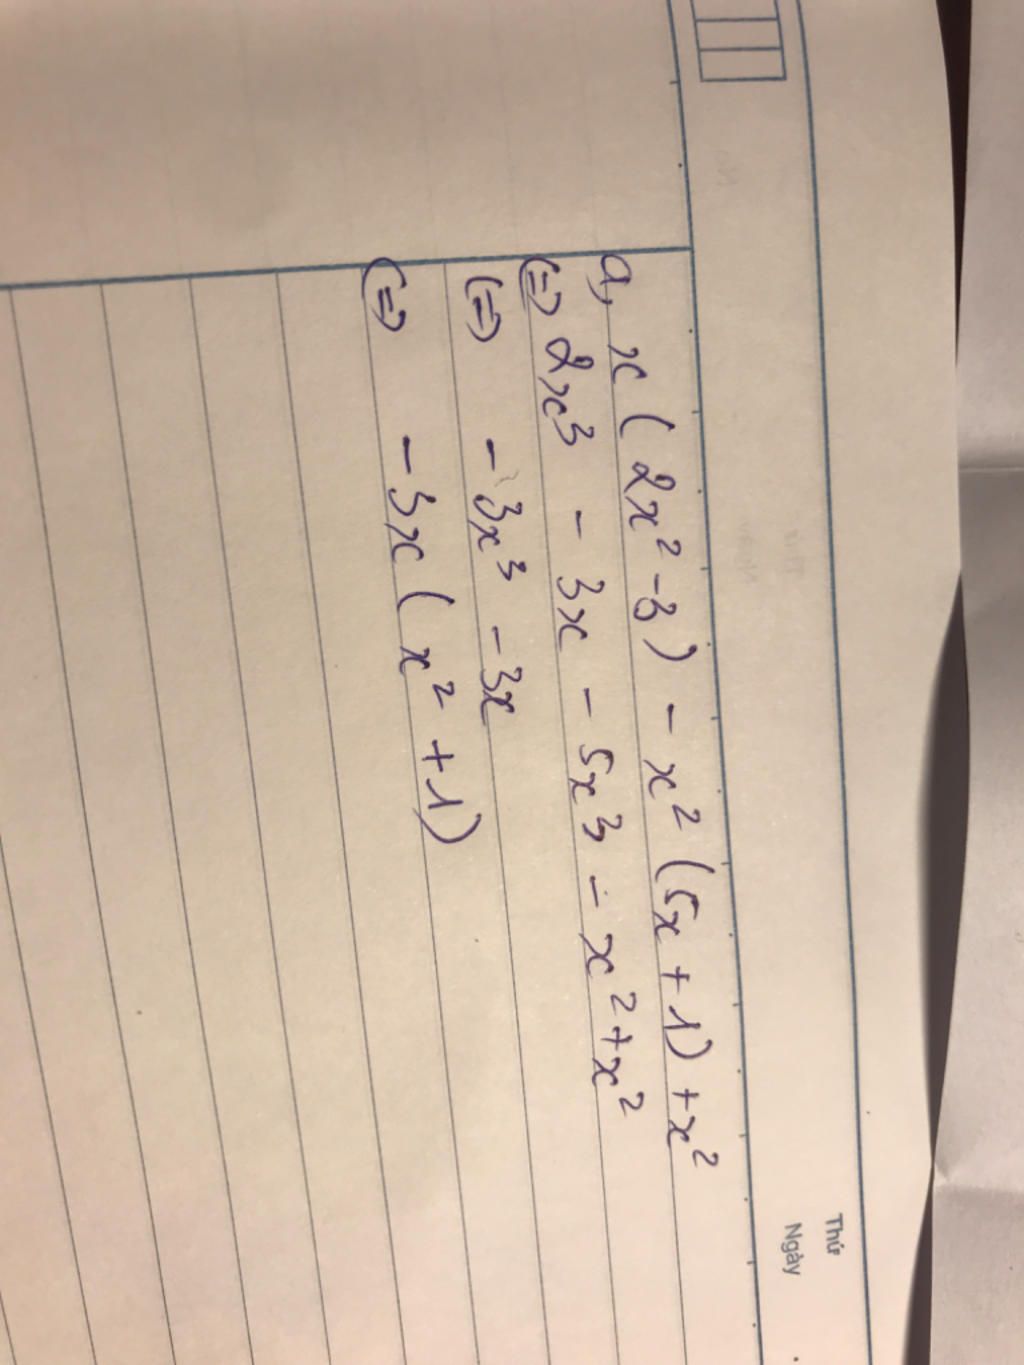 Thứ
Ngày
a, x ( 2x² -3 ) - x² (5x + 1) + x²
(=) 2x³ - 3x - 5x³ - x² + x²
(=) - 3x³ - 3x
(=) - 3x ( x² + 1)